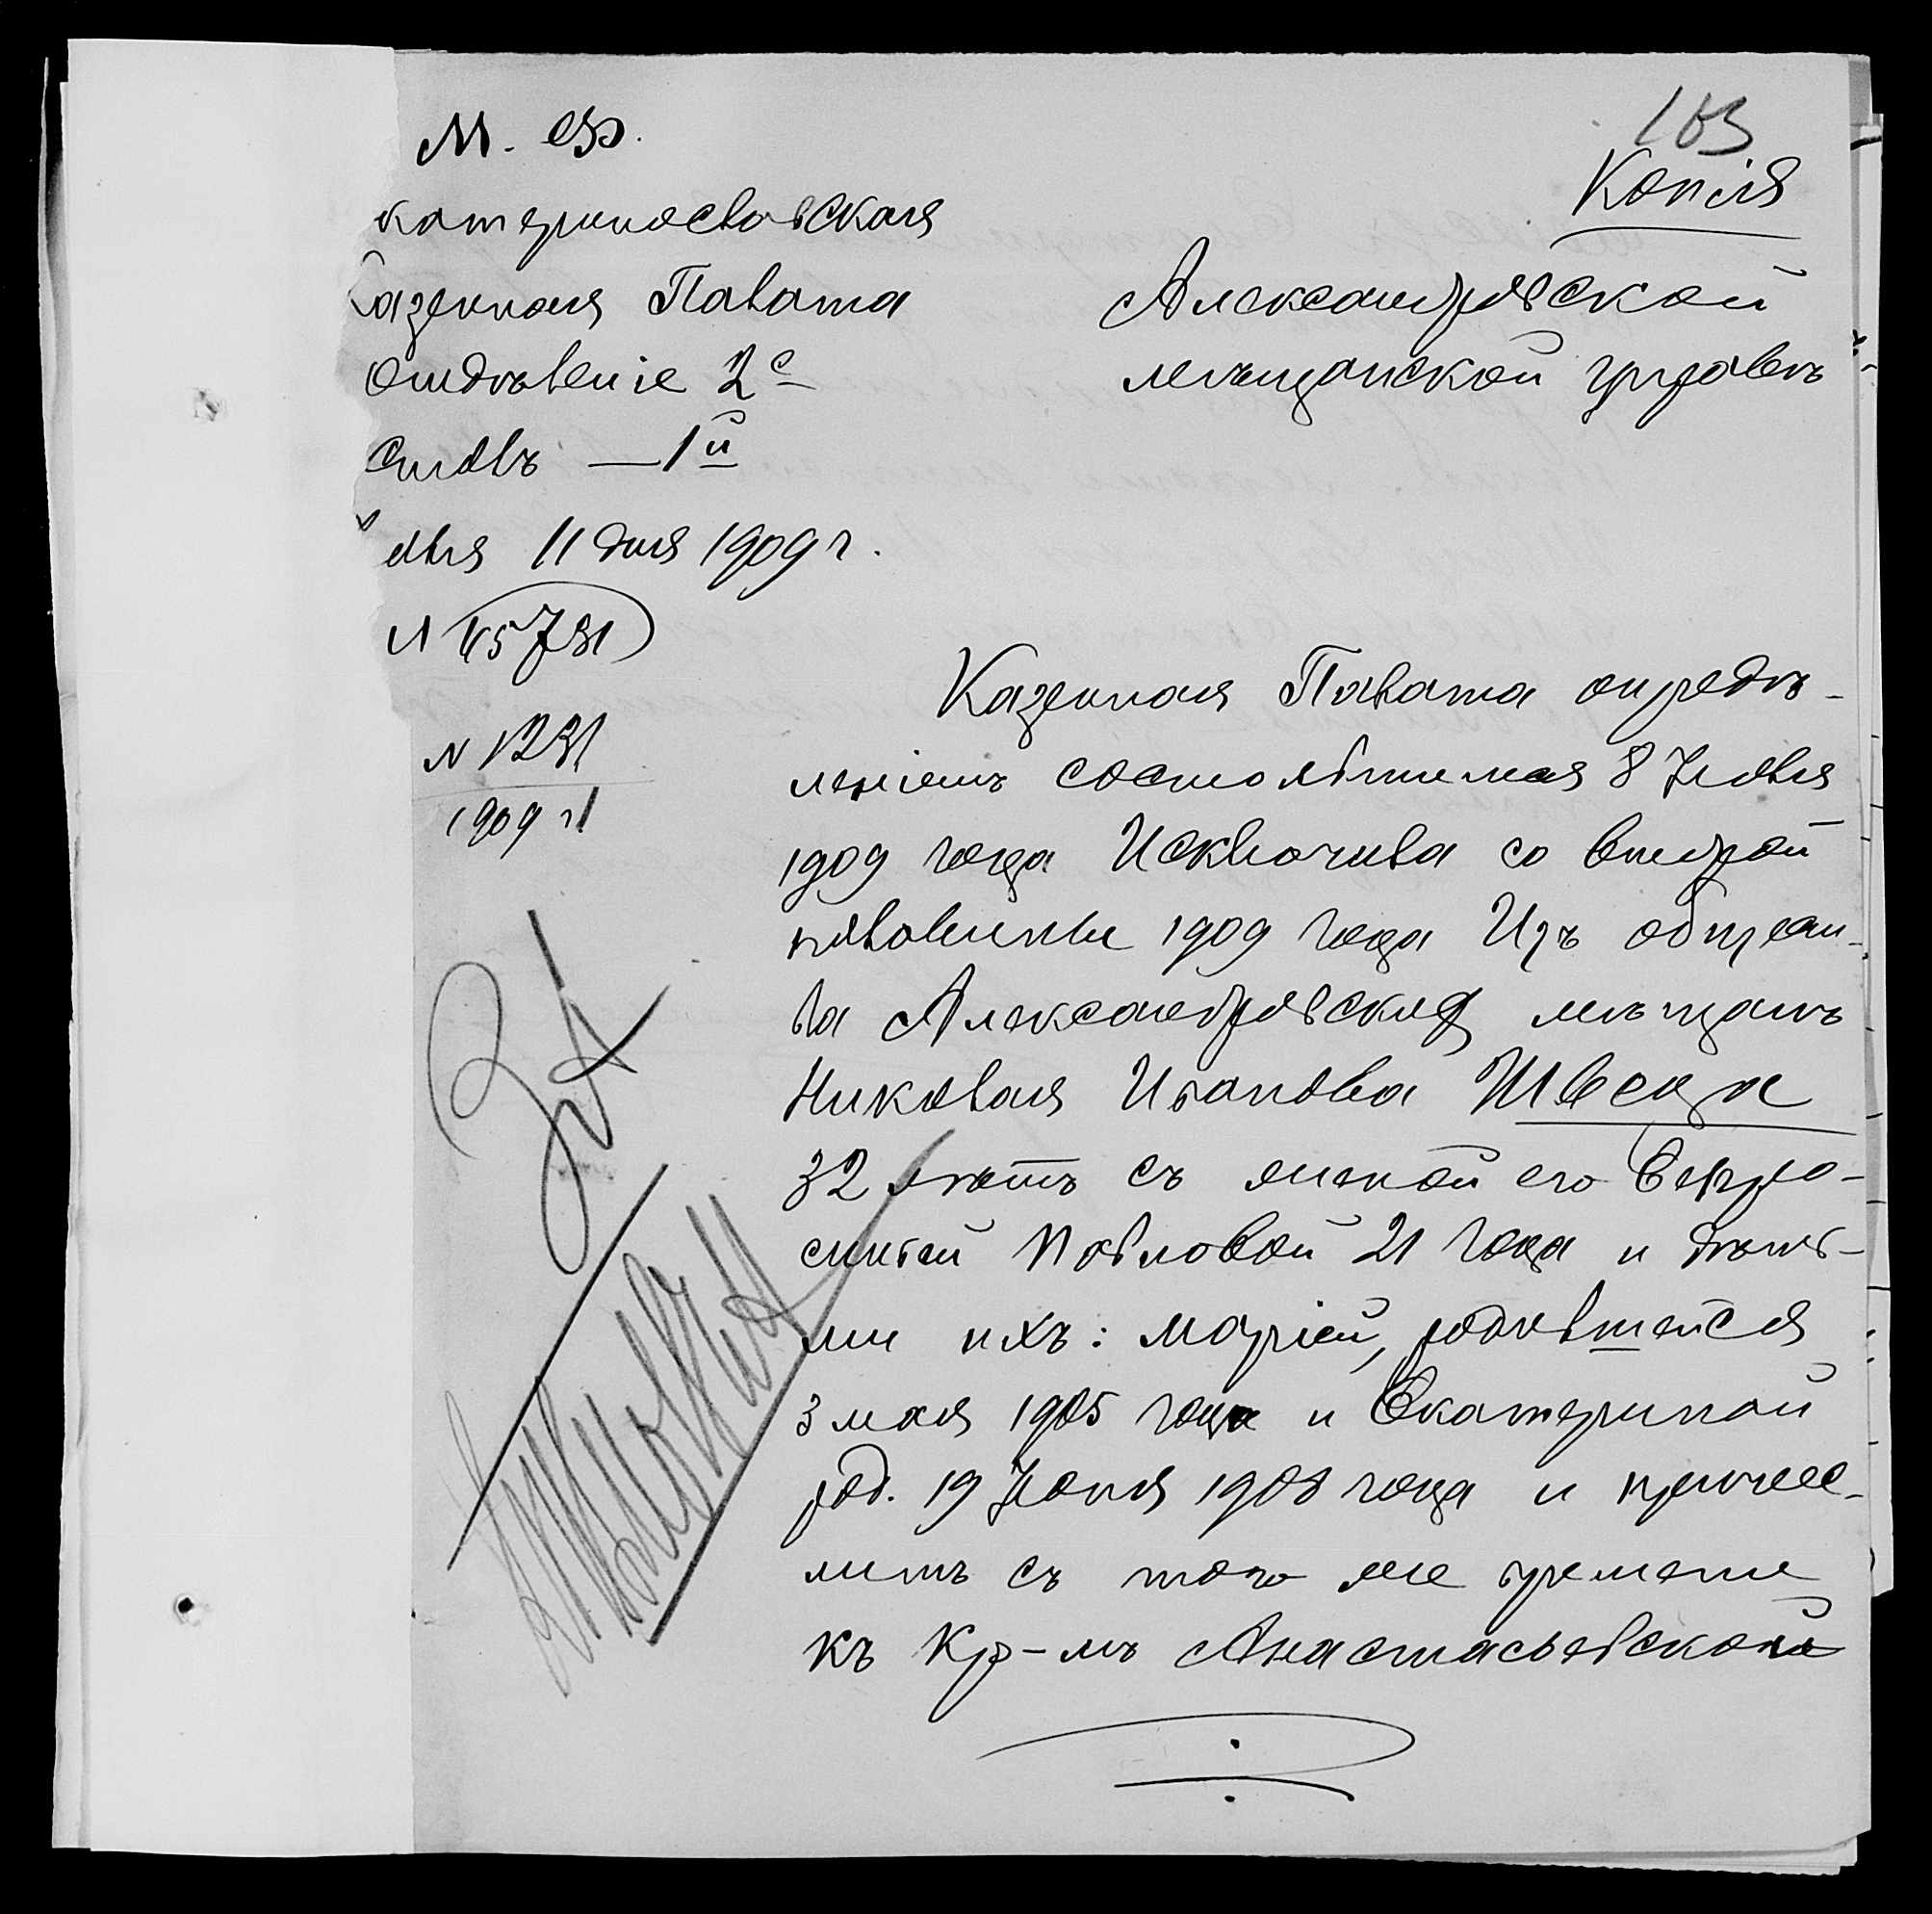 М. Ф.
катеринославская
Казенная Палата
Отдѣленіе 2е
Столъ — 1й
юля 11 дня 1909 г.
N 45731
N 1231
1909 г.
103
Копія
Александровской
мѣщанской управѣ
Казенная Палата опредѣ-
леніемъ состоявшимся 8 Іюля
1909 года Исключила со второй
половины 1909 года Изъ общест-
ва Александровскихъ мѣщанъ
Николая Иванова Швеца
32 лѣтъ съ женой его Евфро-
синіей Павловой 21 года и дѣть-
ми ихъ: Маріей, родившейся
3 мая 1905 года и Екатериной
род. 19 Іюня 1908 года и причис-
лить съ того же времени
къ кр-мъ Анастасьевской